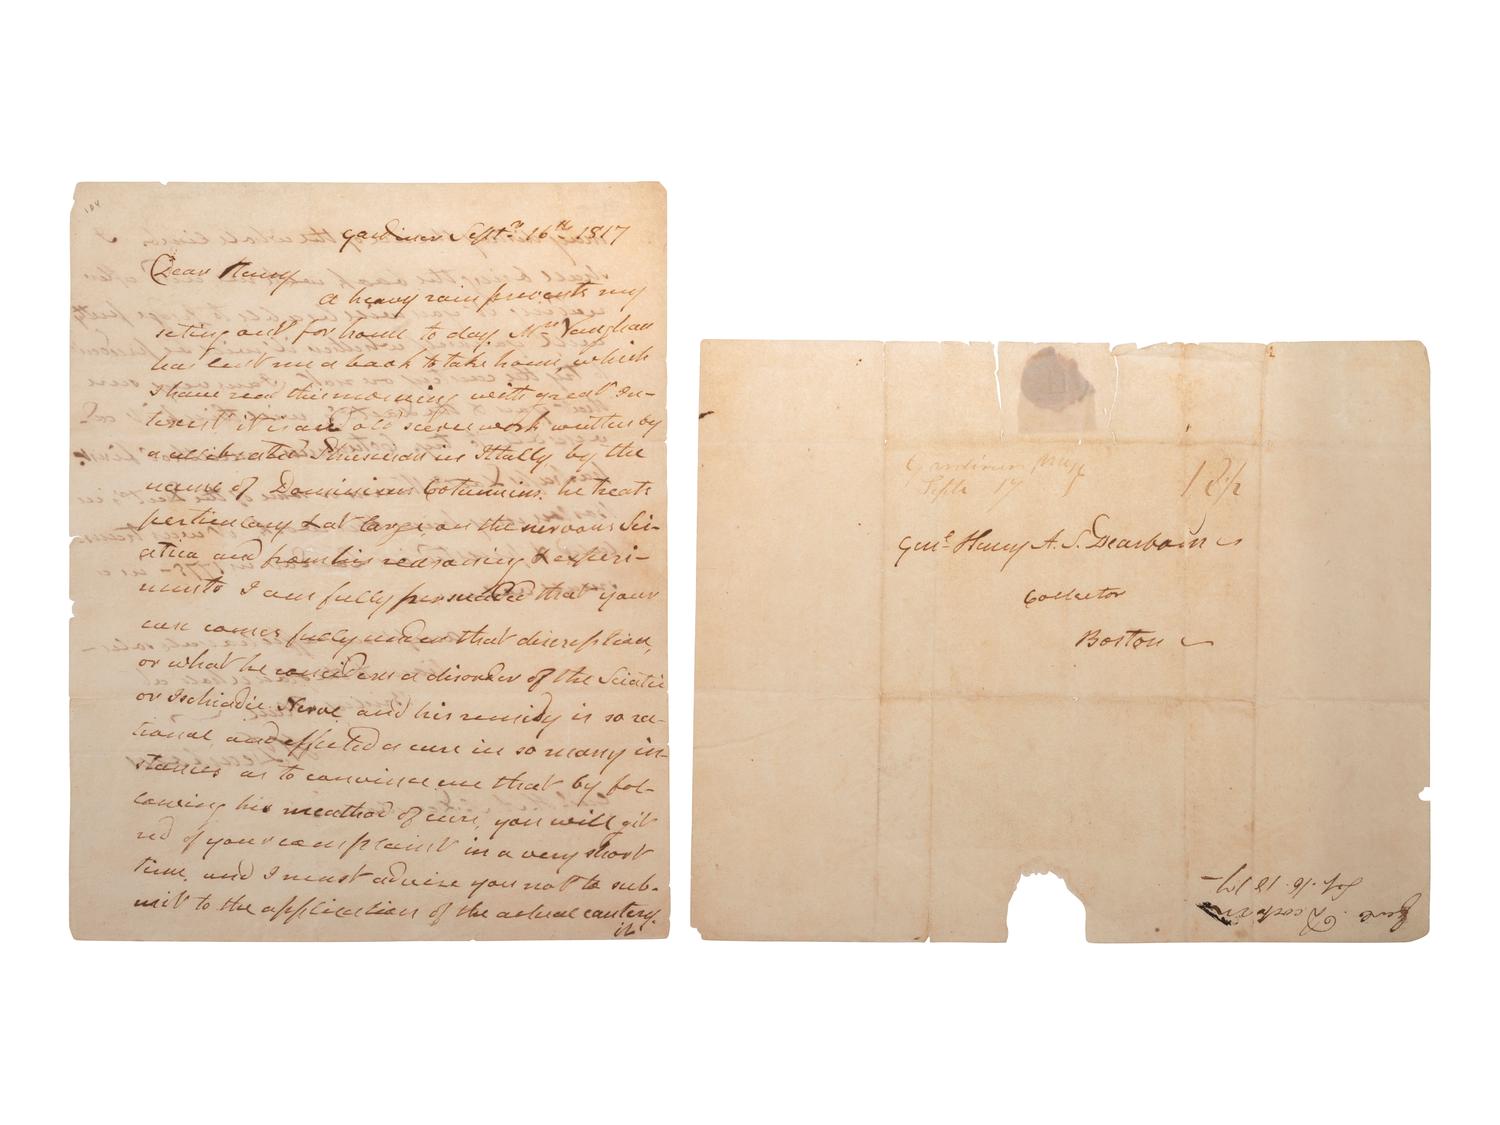 104
Gardiner Septr. 16th 1817
Dear Henry
A heavy rain prevents my
seting out for home to day. Mrs Vaughan
has lent me a book to take home, which
I have read this morning with great In-
terest it is and old scarce work written by
a cellibrated Phisician in Itally by the
name of Dominicus Cotunnius. he treats
perticulary & at large, on the nervous Sci-
atica and from his reasoning & experi-
ments I am fully persuaded that your
case comes fully under that discreption,
or what he considers a disorder of the Sciatic
or Ischiadic Nerve and his remidy is so ra-
tional, and effected a cure in so many in-
stances as to convince me that by fol-
lowing his meathod of cure, you will git
rid of your complaint in a very short
time, and I must advise you not to sub-
mit to the application of the actual cautery.
it
Gardiner
Septr 17
12 1/2
Genl. Henry A. S. Dearborn
Collector
Boston
Genl. Dearborn
Sep. 16. 1817